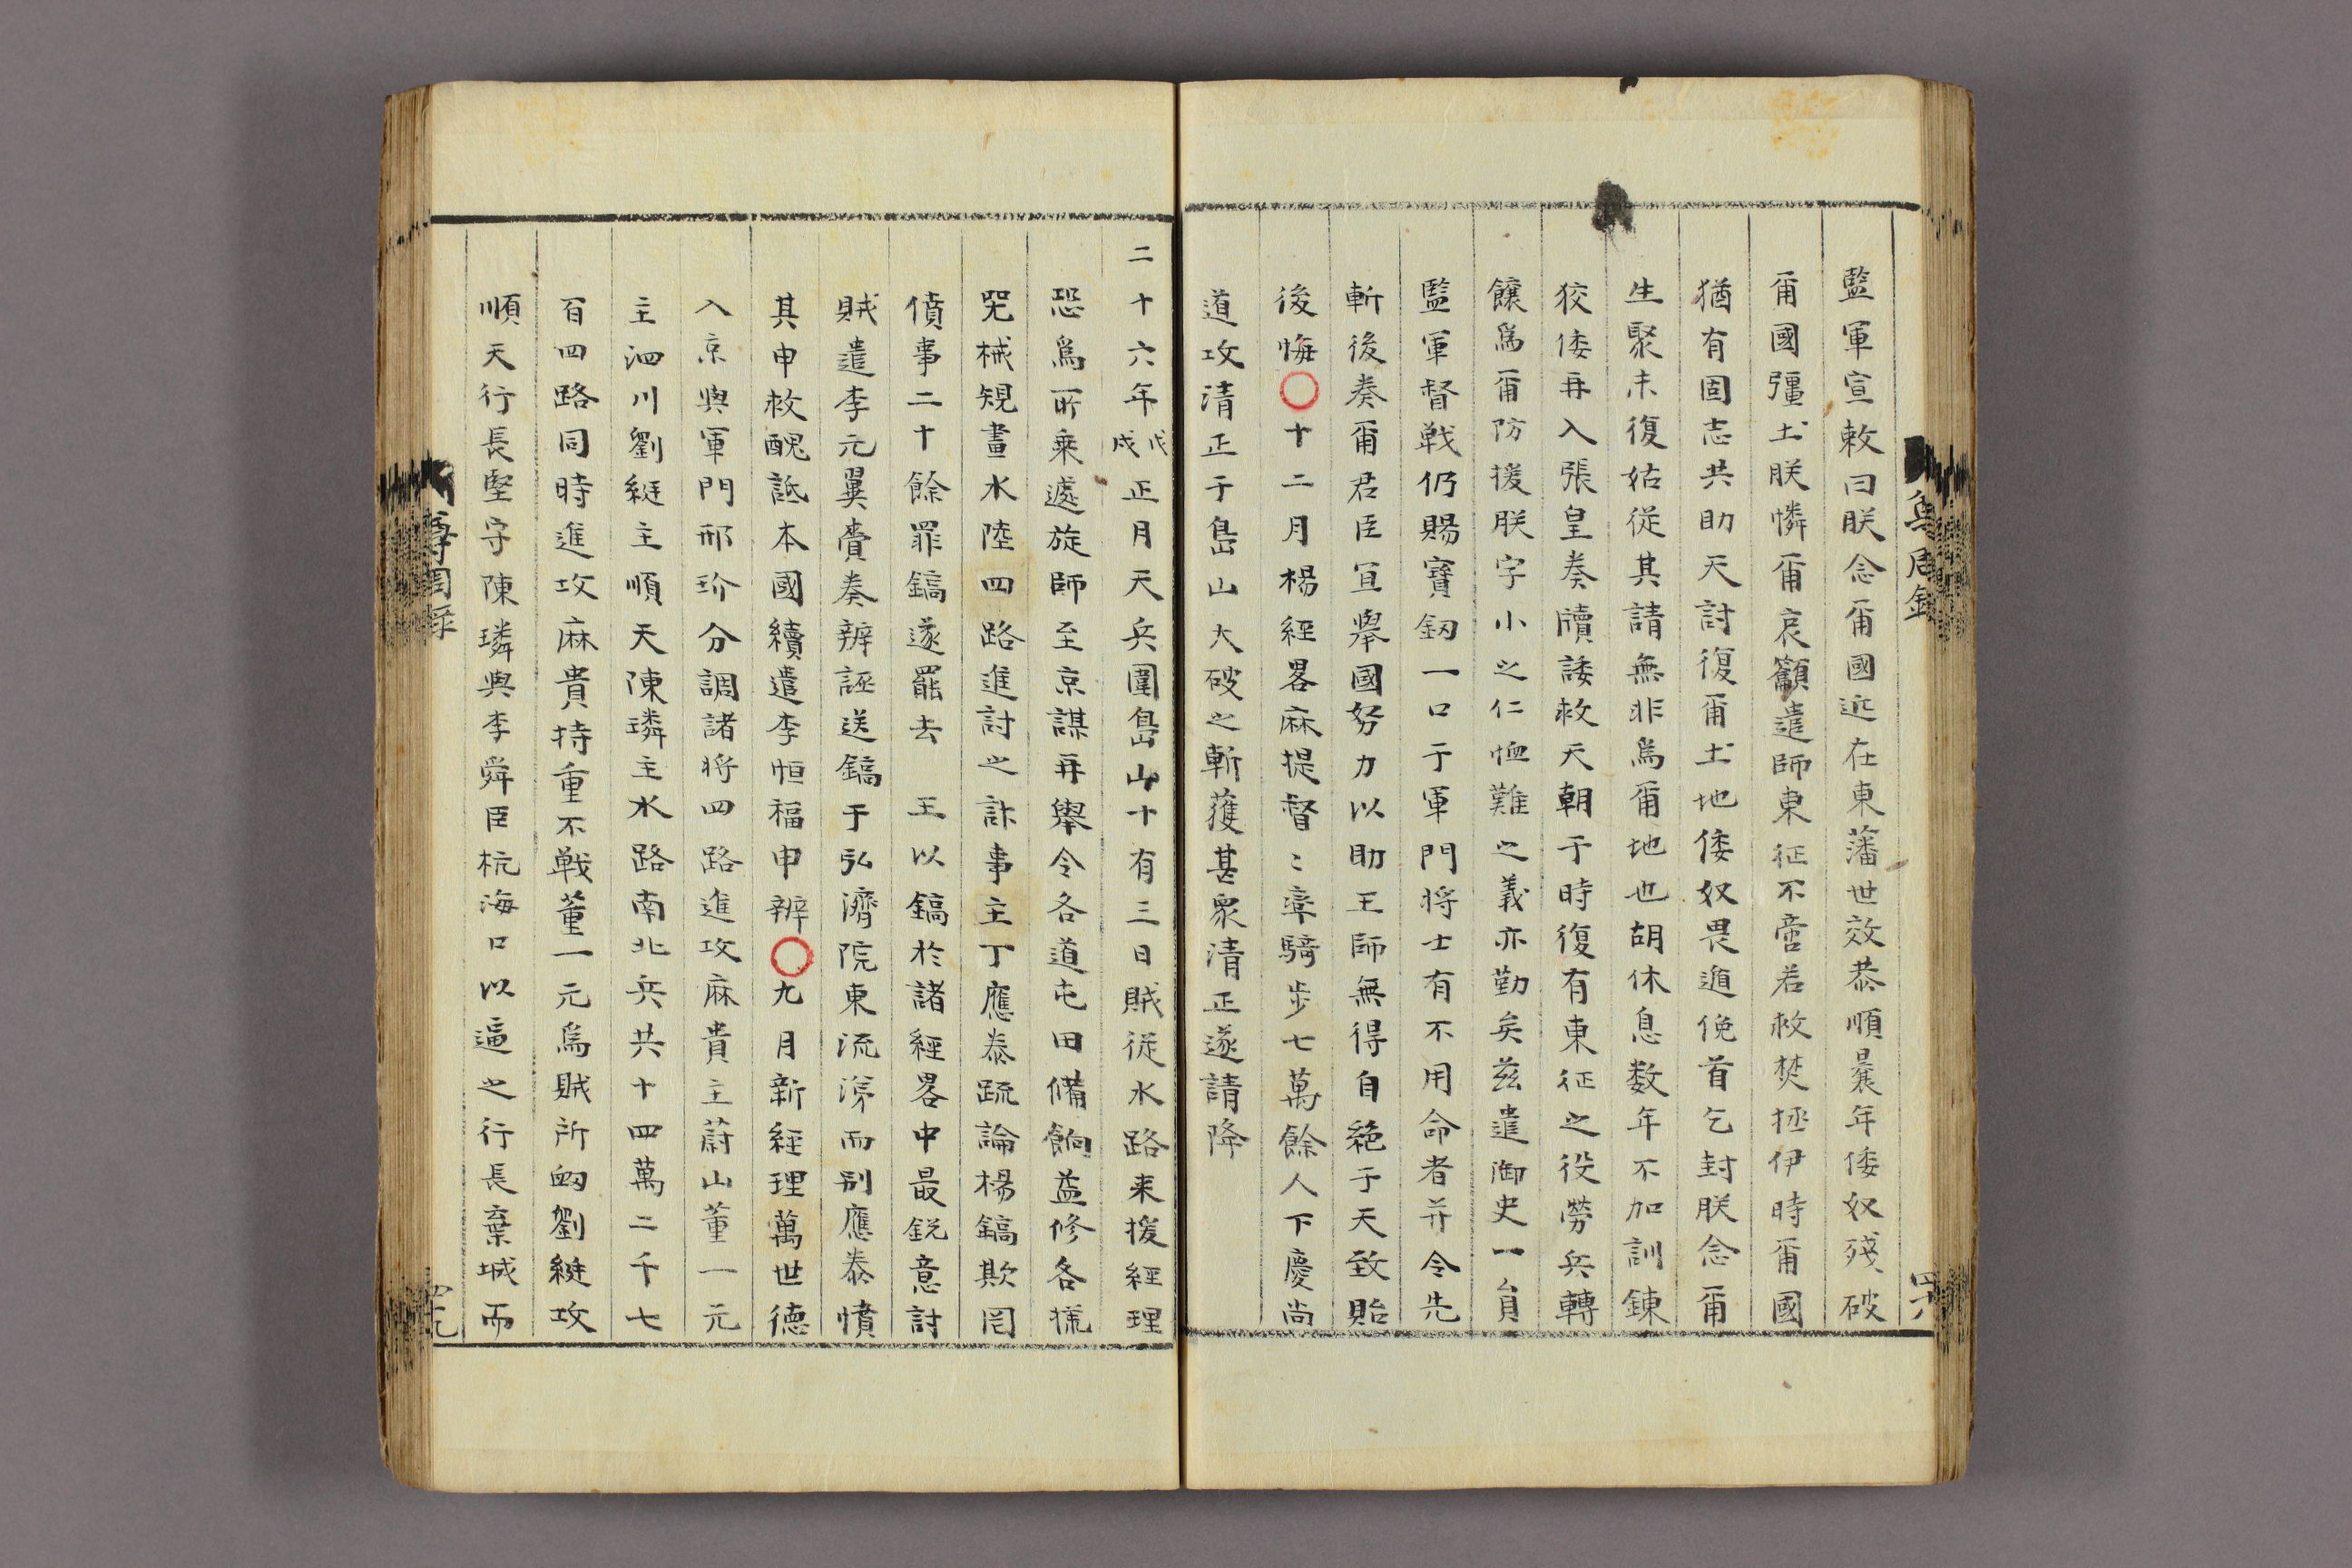 監軍宣敕曰朕念甭國近在東藩世效恭順曩年倭奴殘破
甭國彊土朕憐甭哀籲遣師東征不啻若救焚拯伊時甭國
猶有固志共助天討復甭土地倭奴畏遁俛首乞封朕念甭
生聚未復姑從其請無非爲甭地也胡休息数年不加訓鍊
狡倭再入張皇奏牘諉救天朝于時復有東征之役勞兵轉
饟爲甭防援朕字小之仁恤難之義亦勤矣玆遣御史一員
監軍督戰仍賜寶釼一口于軍門将士有不用命者并令先
斬後奏甭君臣宜舉國努力以助王師無得自絶于天致貽
後悔○十二月楊經畧麻提督〻率騎步七萬餘人下慶尚
道攻清正于島山大破之斬獲甚衆清正遂請降
二十六年戊戌正月天兵圍島山十有三日賊從水路来援經理
恐爲所乗遽旋師至京謀再舉令各道屯田備餉益修各㨾
器械規畫水陸四路進討之計事主丁應泰疏論楊鎬欺罔
僨事二十餘罪鎬遂罷去 王以鎬於諸經畧中最鋭意討
賊遣李元翼賫奏辨誣送鎬于弘濟院東流涕而別應泰憤
其申救醜詆本國續遣李恒福申辨○九月新經理萬世德
入京與軍門邢玠分調諸将四路進攻麻貴主蔚山董一元
主泗川劉綎主順天陳璘主水路南北兵共十四萬二千七
百四路同時進攻麻貴持重不戰董一元爲賊所衂劉綎攻
順天行長堅守陳璘與李舜臣杭海口以逼之行長棄城而
尊周錄
四六
尊周録
四七